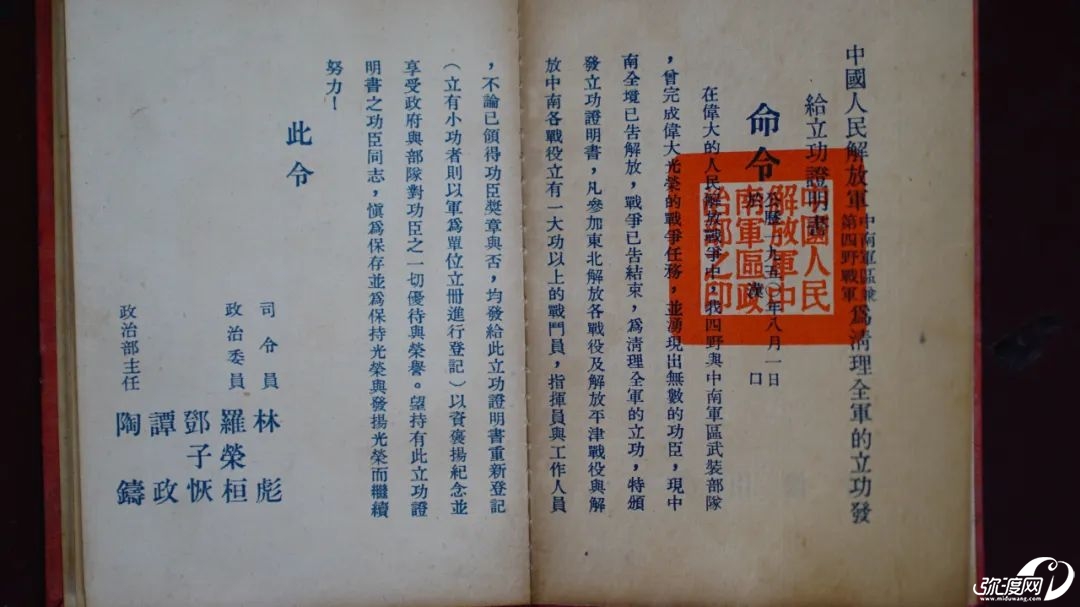 中國人民解放軍中南軍區兼第四野戰軍為清理全軍的立功發
給立功證明書
命令
公歷一九五〇年八月一日
於漢口
中國人民
解放軍中
南軍區政
治部之印
在偉大的人民解放戰爭中，我四野與中南軍區武裝部隊
，曾完成偉大光榮的戰爭任務，並湧現出無數的功臣，現中
南全境已告解放，戰爭已告結束，為清理全軍的立功，特頒
發立功證明書，凡參加東北解放各戰役及解放平津戰役與解
放中南各戰役立有一大功以上的戰鬥員，指揮員與工作人員
，不論已領得功臣獎章與否，均發給此立功證明書重新登記
（立有小功者則以軍為單位立冊進行登記）以資褒揚紀念並
享受政府與部隊對功臣之一切優待與榮譽。望持有此立功證
明書之功臣同志，慎為保存並為保持光榮與發揚光榮而繼續
努力！
此令
司令員 林彪
政治委員 羅榮桓
鄧子恢
譚政
政治部主任 陶鑄
弥渡网
www.miduwang.com